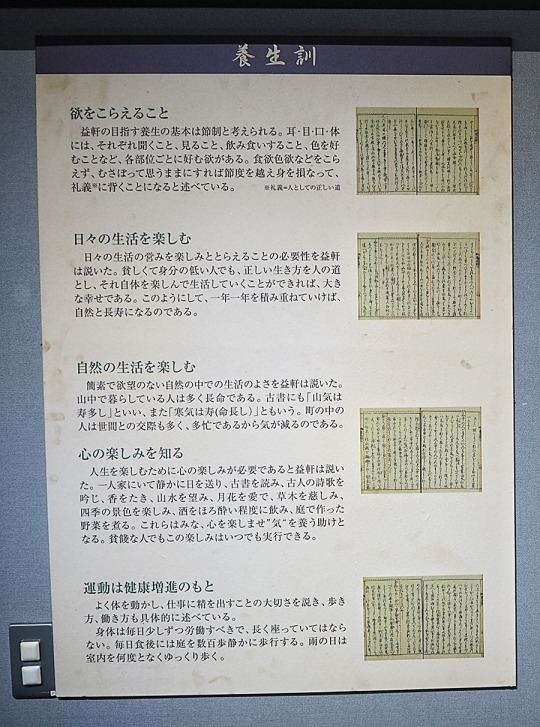 養生訓
欲をこらえること
益軒の目指す養生の基本は節制と考えられる。耳・目・口・体
には、それぞれ聞くこと、見ること、飲み食いすること、色を好
むことなど、各部位ごとに好む欲がある。食欲色欲などをこら
えず、むさぼって思うままにすれば節度を越え身を損なって、
礼義※に背くことになると述べている。
※礼義=人としての正しい道
日々の生活を楽しむ
日々の生活の営みを楽しみととらえることの必要性を益軒
は説いた。貧しくて身分の低い人でも、正しい生き方を人の道
とし、それ自体を楽しんで生活していくことができれば、大き
な幸せである。このようにして、一年一年を積み重ねていけば、
自然と長寿になるのである。
自然の生活を楽しむ
簡素で欲望のない自然の中での生活のよさを益軒は説いた。
山中で暮らしている人は多く長命である。古書にも「山気は
寿多し」といい、また「寒気は寿(命長し)」ともいう。町の中の
人は世間との交際も多く、多忙であるから気が減るのである。
心の楽しみを知る
人生を楽しむために心の楽しみが必要であると益軒は説い
た。一人家にいて静かに日を送り、古書を読み、古人の詩歌を
吟じ、香をたき、山水を望み、月花を愛で、草木を慈しみ、
四季の景色を楽しみ、酒をほろ酔い程度に飲み、庭で作った
野菜を煮る。これらはみな、心を楽しませ"気"を養う助けと
なる。貧賤な人でもこの楽しみはいつでも実行できる。
運動は健康増進のもと
よく体を動かし、仕事に精を出すことの大切さを説き、歩き
方、働き方も具体的に述べている。
身体は毎日少しずつ労働すべきで、長く座っていてはなら
ない。毎日食後には庭を数百歩静かに歩行する。雨の日は
室内を何度となくゆっくり歩く。